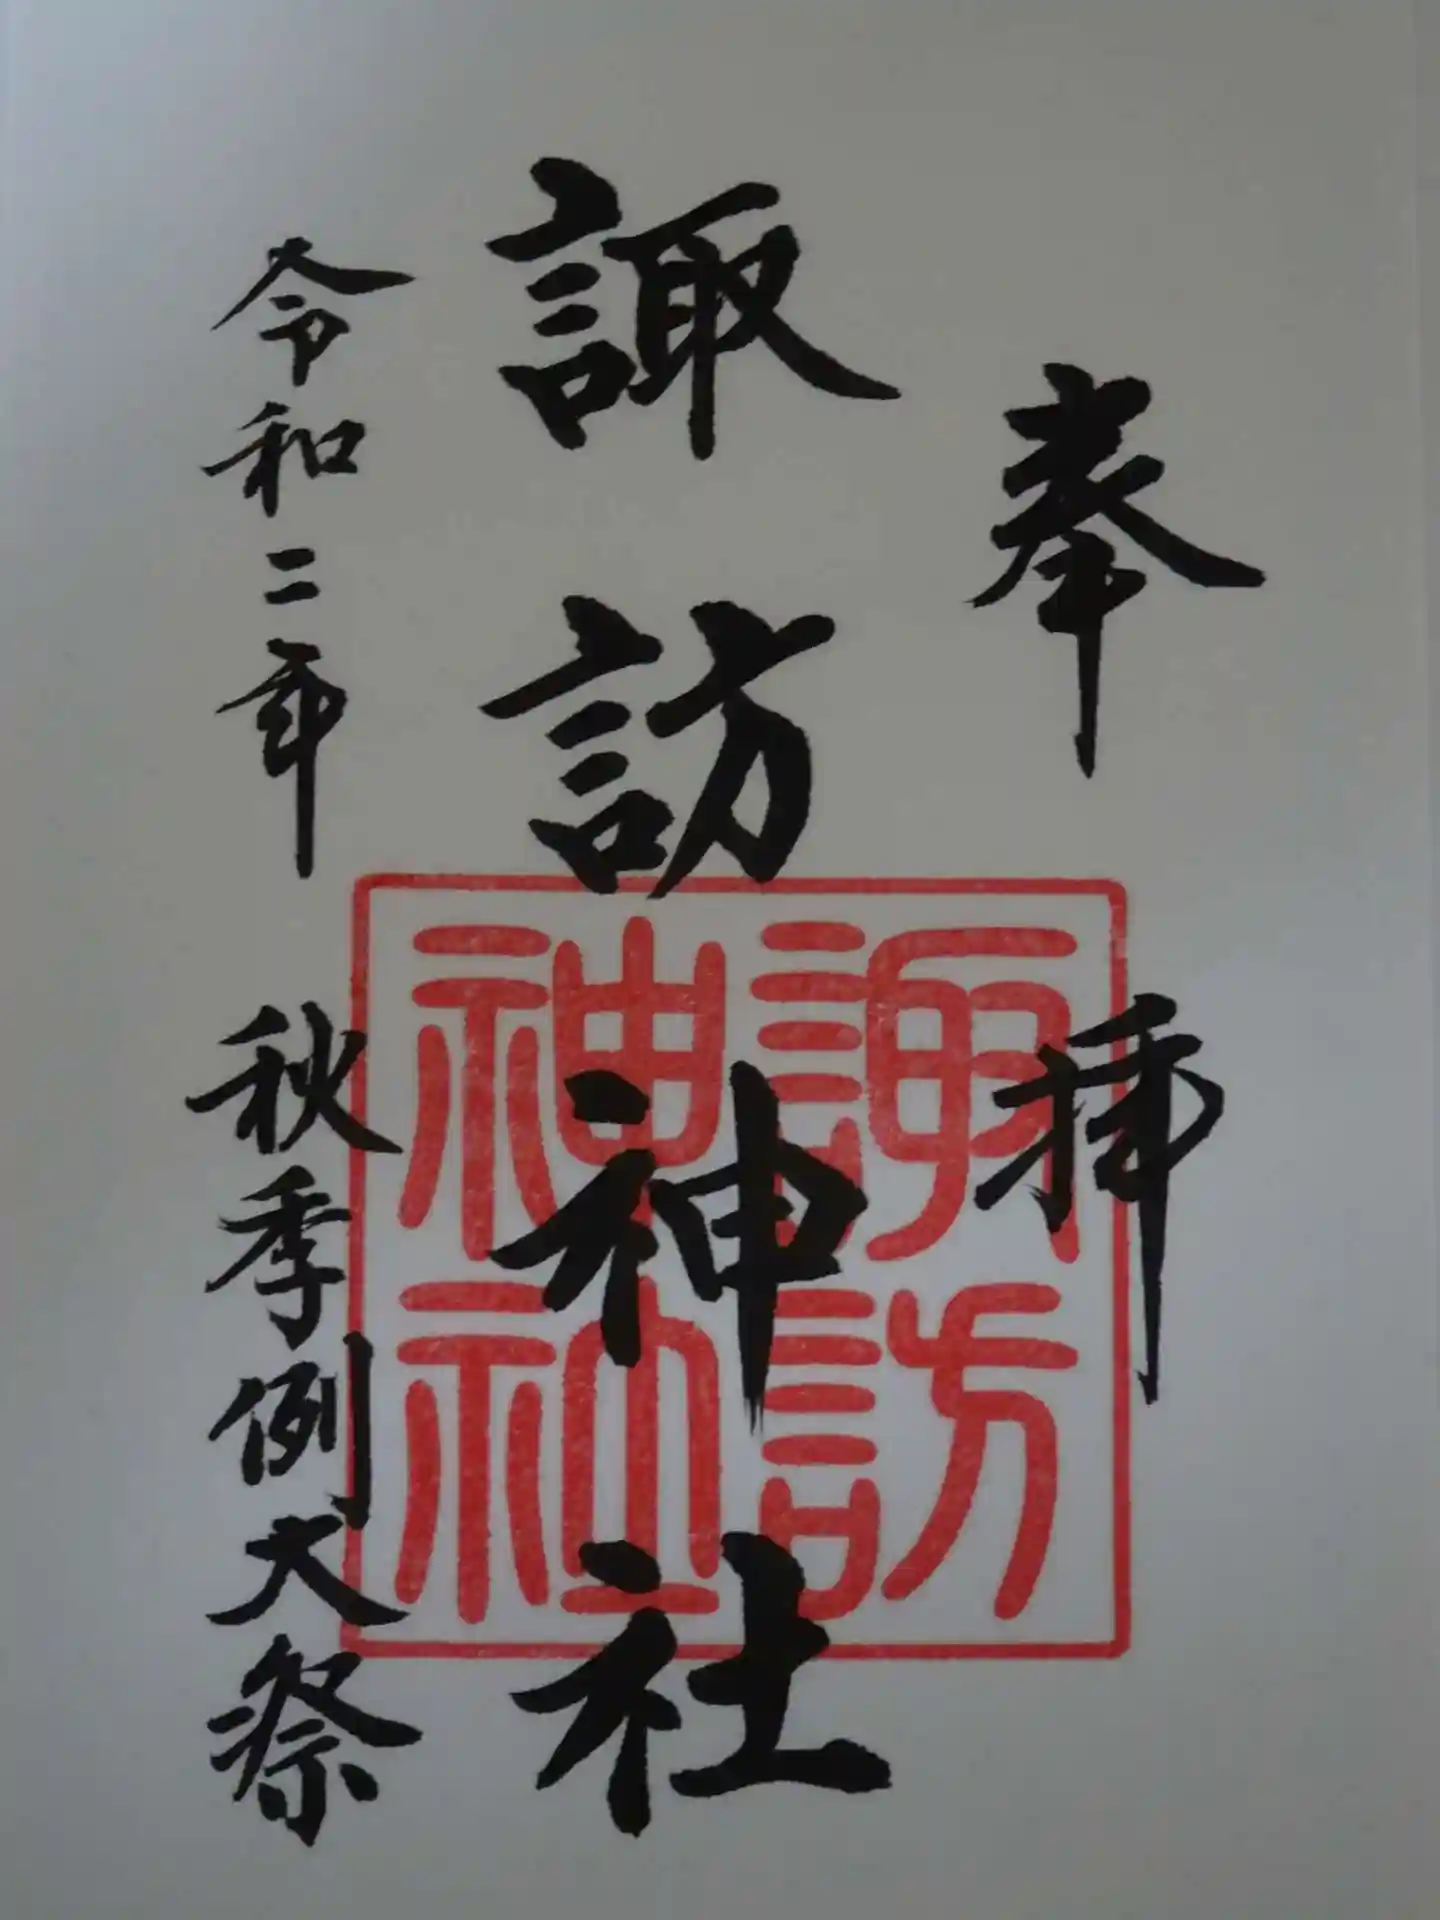 奉拝
諏訪神社
令和二年 秋季例大祭
諏訪
神社